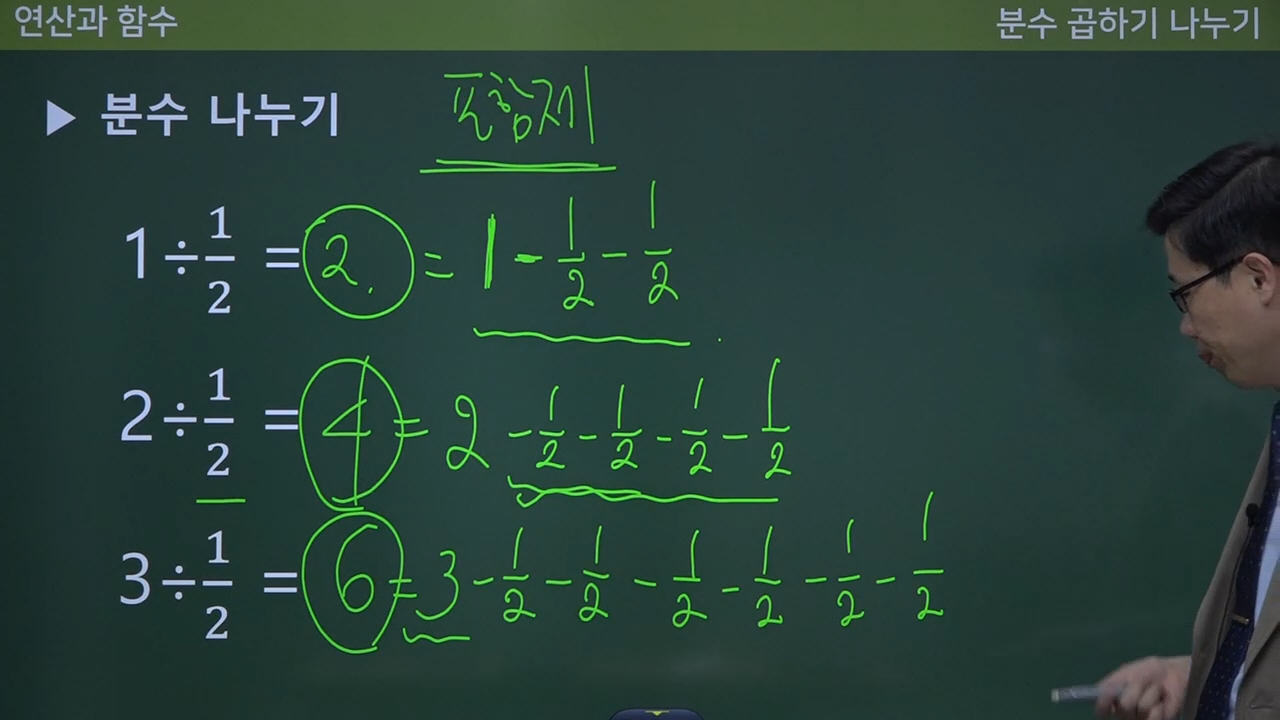 연산과 함수
분수 곱하기 나누기
▶ 분수 나누기
포함제
1÷1/2 = 2. = 1 - 1/2 - 1/2
2÷1/2 = 4 = 2 - 1/2 - 1/2 - 1/2 - 1/2
3÷1/2 = 6 = 3 - 1/2 - 1/2 - 1/2 - 1/2 - 1/2 - 1/2